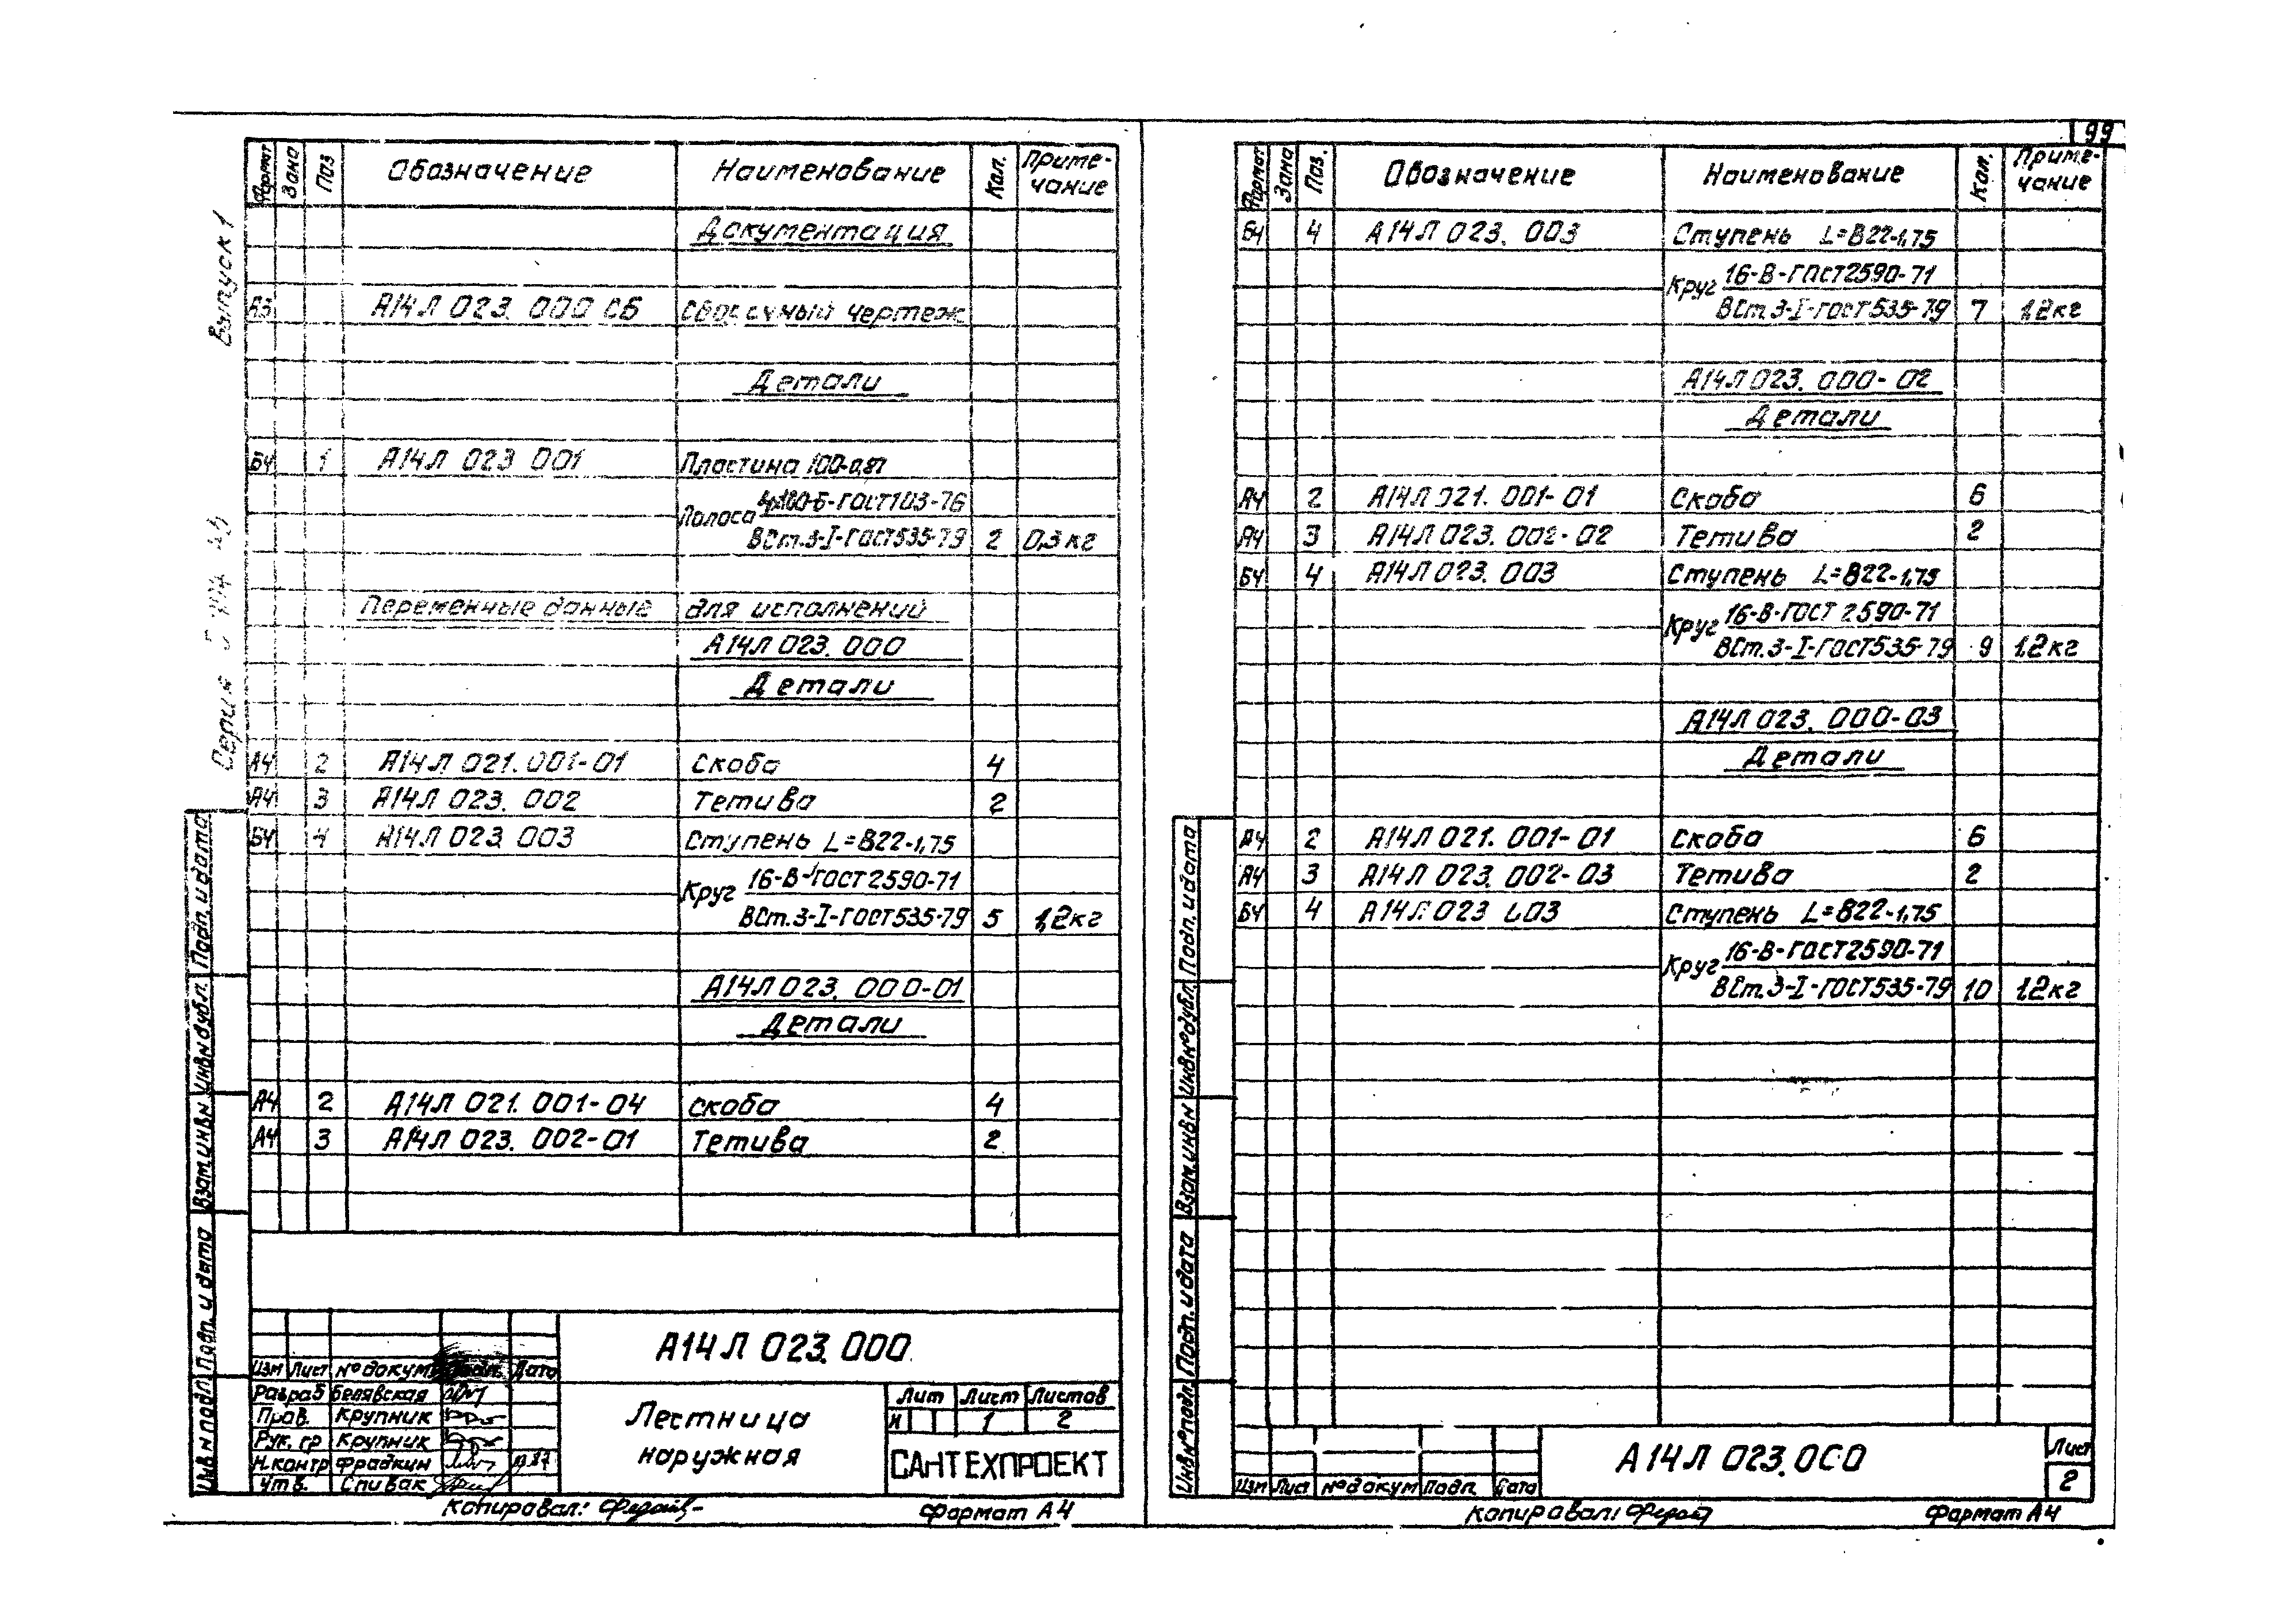 99
Выпуск 1
Серия
Формат Зона Поз Обозначение Наименование Кол. Приме-чание
Документация
А3 А14Л 023. 000 СБ Сборочный чертеж
Детали
БЧ 1 А14Л 023 001 Пластина 100-0,87
Полоса 4х100-Б-ГОСТ103-76
ВСт.3-I-ГОСТ535-79 2 0,3кг
Переменные данные для исполнений
А14Л 023. 000
Детали
А4 2 А14Л 021. 001-01 Скоба 4
А4 3 А14Л 023. 002 Тетива 2
БЧ 4 А14Л 023. 003 Ступень L=822-1,75
Круг 16-В-ГОСТ2590-71
ВСт.3-I-ГОСТ535-79 5 1,2кг
А14Л 023. 000-01
Детали
А4 2 А14Л 021. 001-04 скоба 4
А4 3 А14Л 023. 002-01 Тетива 2
Подп. и дата
Инв№дубл.
Взам.инв№
Подп. и дата
Инв№подл
А14Л 023. 000
Изм Лист №докум Подп. Дата
Разраб Белявская
Пров. Крупник
Рук. гр Крупник
Н.контр Фрадкин
Утв. Спивак
Лестница
наружная
Лит Лист Листов
И 1 2
САНТЕХПРОЕКТ
Копировал:
Формат А4
Формат Зона Поз. Обозначение Наименование Кол. Приме-чание
БЧ 4 А14Л 023. 003 Ступень L=822-1,75
Круг 16-В-ГОСТ2590-71
ВСт.3-I-ГОСТ535-79 7 1,2кг
А14Л 023. 000-02
Детали
А4 2 А14Л 021. 001-01 Скоба 6
А4 3 А14Л 023. 002-02 Тетива 2
БЧ 4 А14Л 023. 003 Ступень L=822-1,75
Круг 16-В-ГОСТ 2590-71
ВСт.3-I-ГОСТ535-79 9 1.2кг
А14Л 023. 000-03
Детали
А4 2 А14Л 021. 001-01 Скоба 6
А4 3 А14Л 023. 002-03 Тетива 2
БЧ 4 А14Л 023 003 Ступень L=822-1,75
Круг 16-В-ГОСТ2590-71
ВСт.3-I-ГОСТ535-79 10 1.2кг
Подп. и дата
Инв№дубл.
Взам.инв№
Подп. и дата
Инв№подл.
Изм Лист №докум Подп. Дата
А14Л 023.000
Лист
2
Копировал:
Формат А4